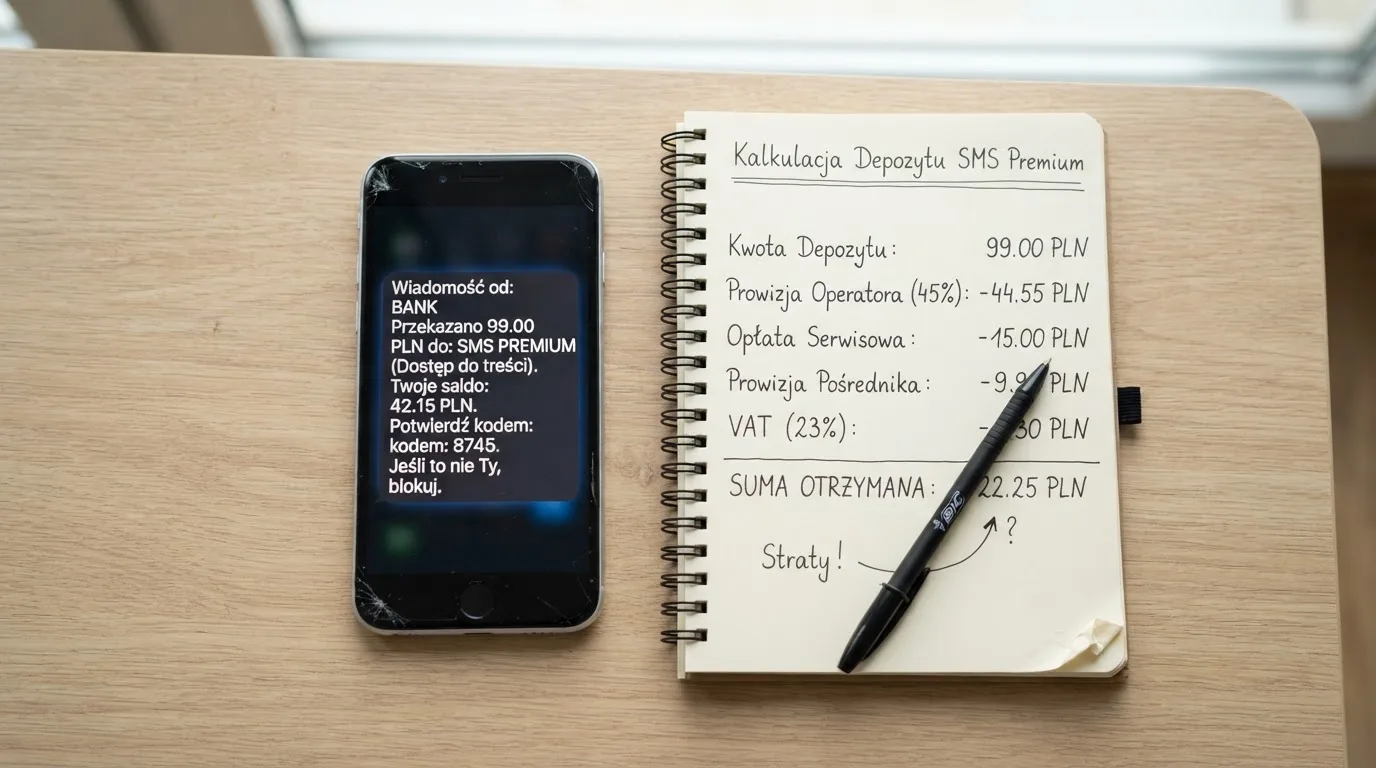 Wiadomość od:
BANK
Przekazano 99.00
PLN do: SMS PREMIUM
(Dostęp do treści).
Twoje saldo:
42.15 PLN.
Potwierdź kodem:
kodem: 8745.
Jeśli to nie Ty,
blokuj.
Kalkulacja Depozytu SMS Premium
Kwota Depozytu: 99.00 PLN
Prowizja Operatora (45%): -44.55 PLN
Opłata Serwisowa: -15.00 PLN
Prowizja Pośrednika: PLN
VAT (23%): PLN
SUMA OTRZYMANA: 22.25 PLN
?
Straty!
BIC